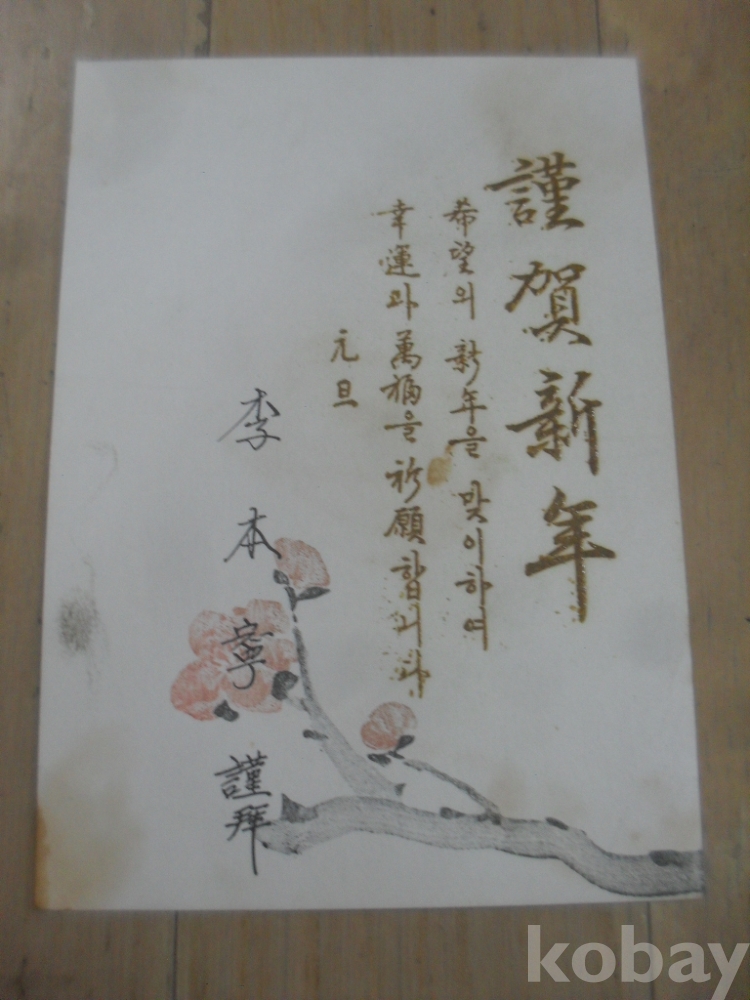 謹賀新年
希望의 新年을 맞이하여
幸運과 萬福을 祈願합니다
元旦
李本寧 謹拜
kobay